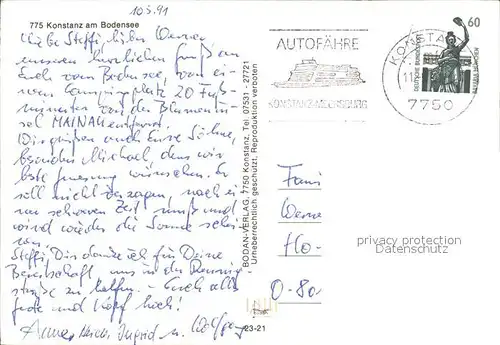 10.5.91
775 Konstanz am Bodensee
Liebe Steffi, lieber Werner
unseren herzlichen Gruß an
Euch vom Bodensee, von ei-
nem Campingplatz 20 Fuß-
minuten von der Blumenin-
sel MAINAU entfernt.
Wir grüßen auch Eure Söhne,
besonders Michael, dem wir
beste Genesung wünschen. Er
soll nicht verzagen, nach ei-
ner schweren Zeit muß und
wird wieder die Sonne schei-
nen.
Steffi, Dir danke ich für Deine
Bereitschaft, uns in der
zu helfen. – Euch alles
Gute und Kopf hoch!
Ingrid u. Wolfgang
BODAN-VERLAG, 7750 Konstanz, Tel. 07531 - 27721
Urheberrechtlich geschützt. Reproduktion verboten
23-21
AUTOFÄHRE
KONSTANZ-MEERSBURG
KONSTANZ
11
7750
60
DEUTSCHE BUNDESPOST
Fami
Werne
Flo-
O-80
privacy protection
Datenschutz